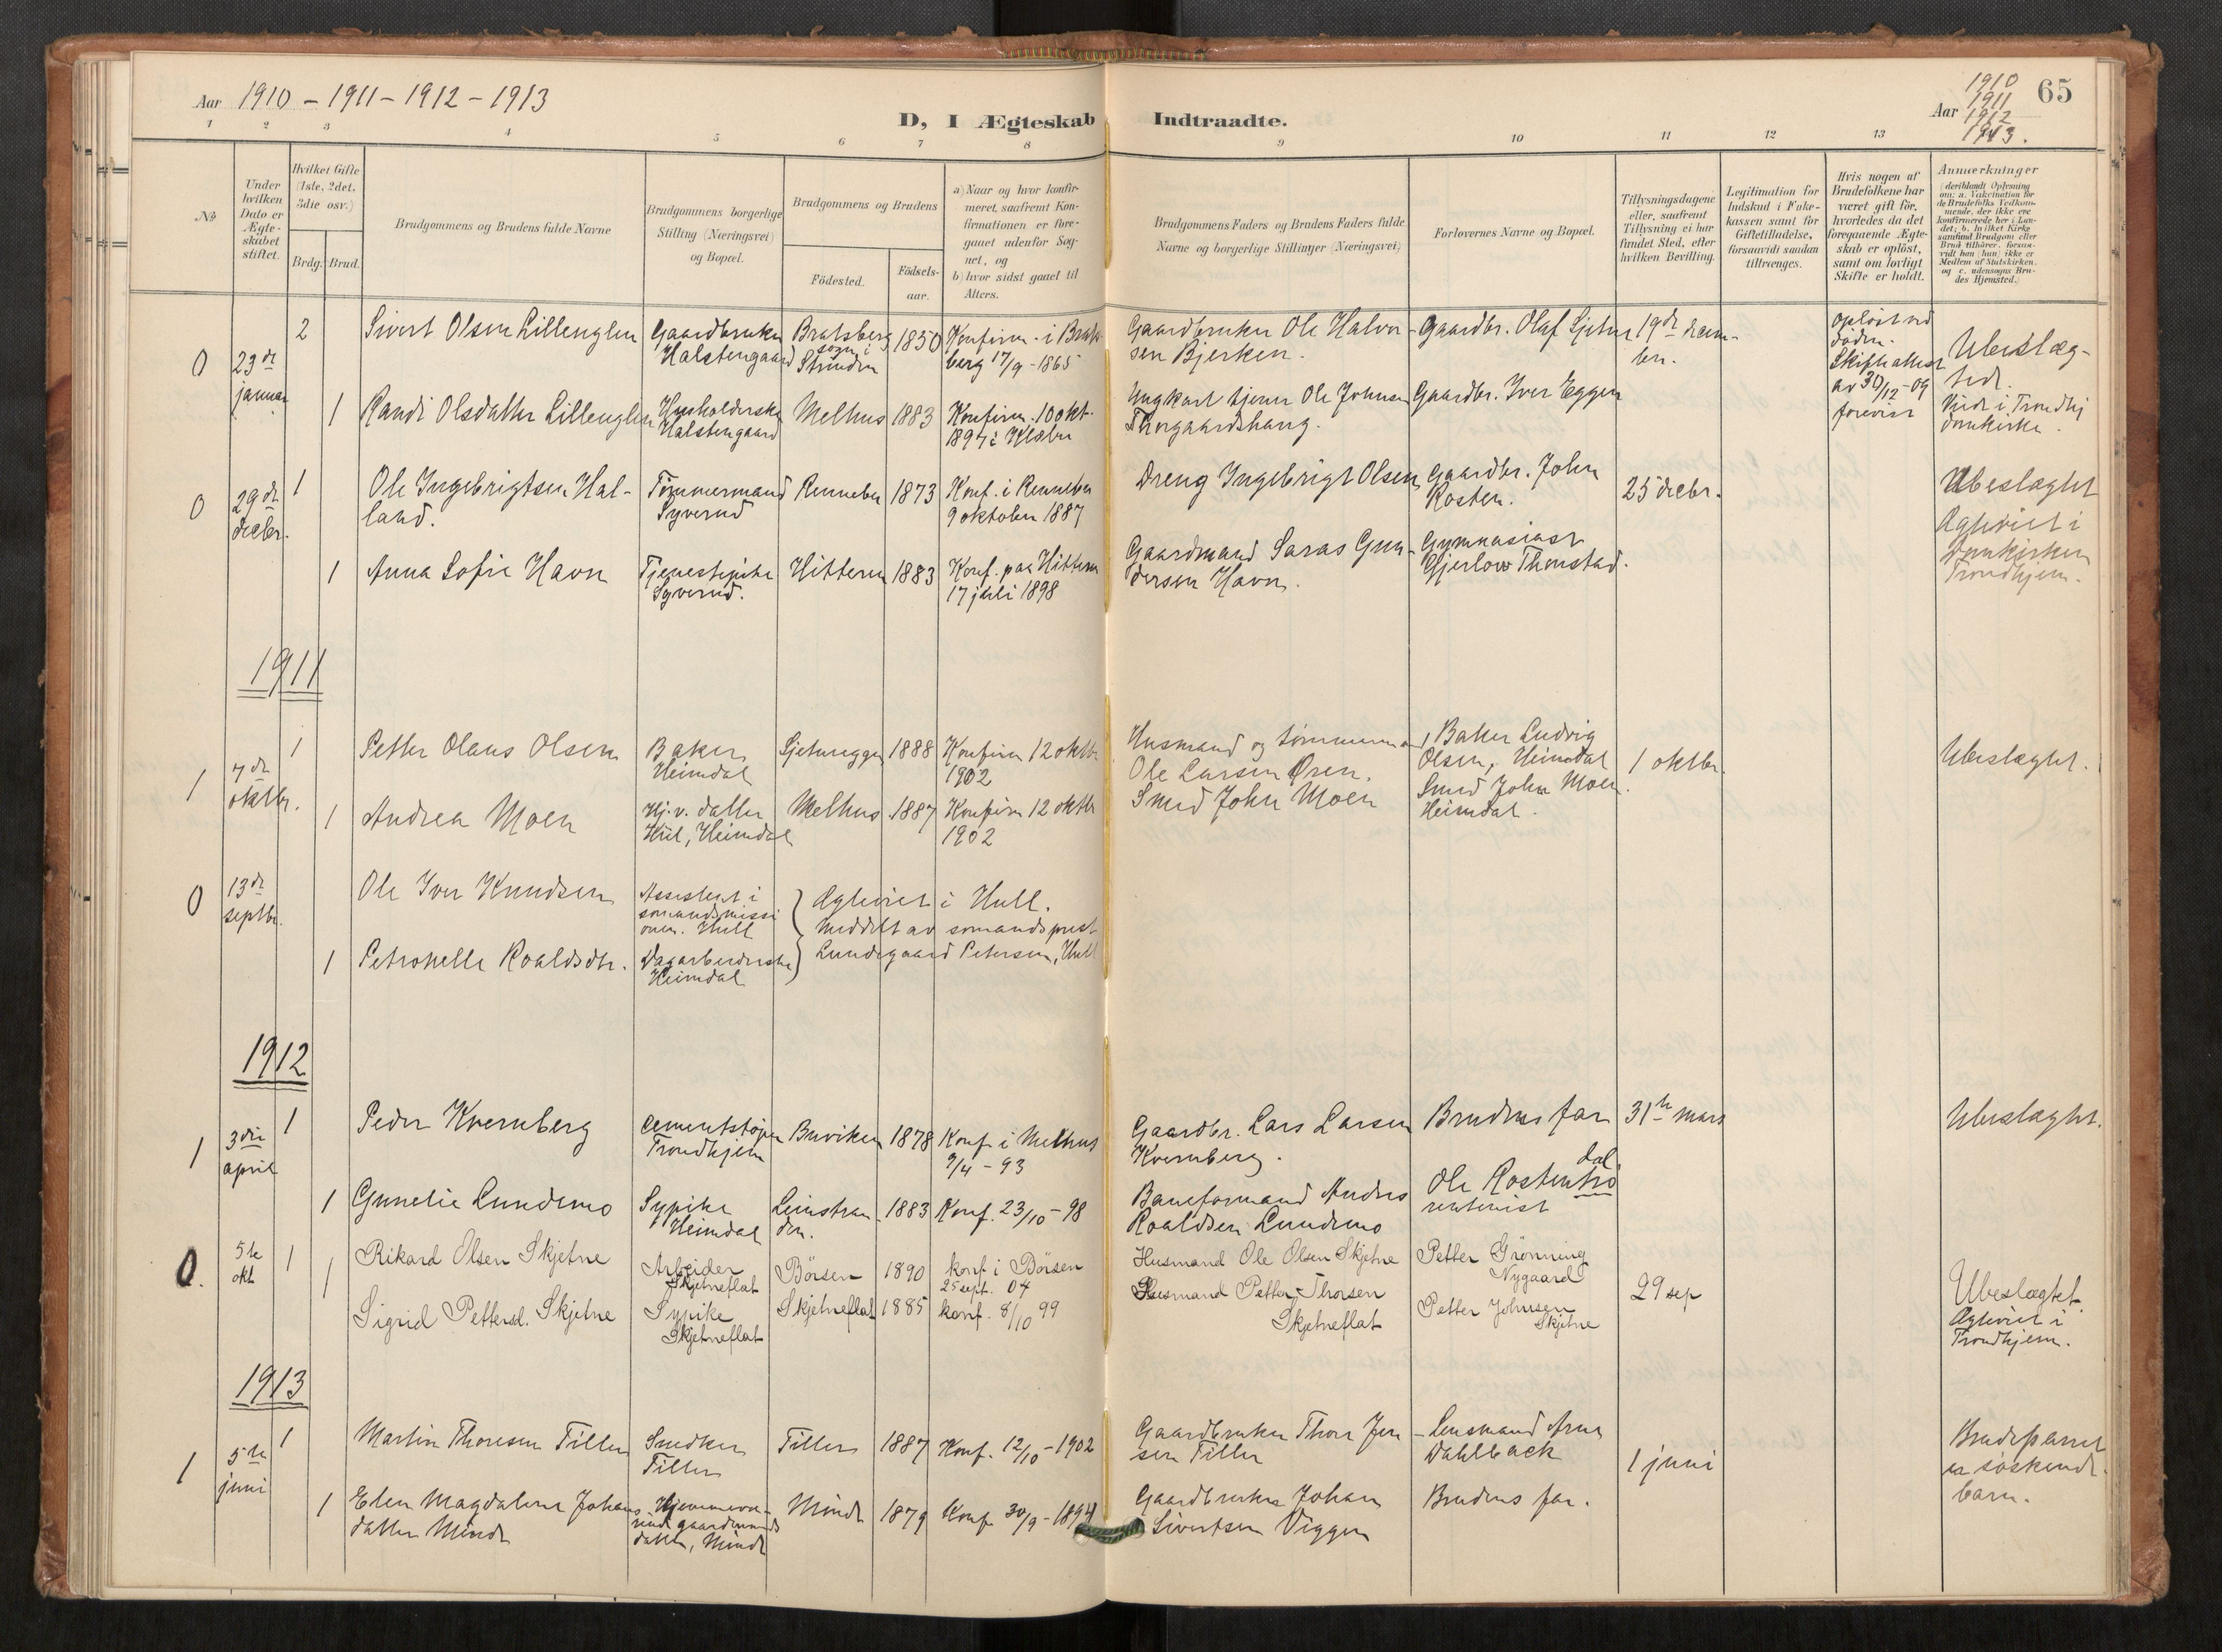 Aar 1910 - 1911 - 1912 - 1913
D, I Ægteskab Indtraadte.
Aar 1910
1911
1912
1913.
65
1 2 3 4 5 6 7 8 9 10 11 12 13
No
Under
hvilken
Dato er
Ægte-
skabet
stiftet.
Hvilket Gifte
(1ste, 2det,
3die osv.)
Brdg. Brud.
Brudgommens og Brudens fulde Navne
Brudgommens borgerlige
Stilling (Næringsvei)
og Bopæl.
Brudgommens og Brudens
Födested.
Födsels-
aar.
a) Naar og hvor konfir-
meret, saafremt Kon-
firmationen er fore-
gaaet udenfor Sog-
net, og
b) hvor sidst gaaet til
Alters.
Brudgommens Faders og Brudens Faders fulde
Navne og borgerlige Stillinger (Næringsvei)
Forlovernes Navne og Bopæl.
Tillysningsdagene
eller, saafremt
Tillysning ei har
fundet Sted, efter
hvilken Bevilling.
Legitimation for
Indskud i Enke-
kassen samt for
Giftetilladelse,
forsaavidt saadan
tiltrænges.
Hvis nogen af
Brudefolkene har
været gift för,
hvorledes da det
foregaaende Ægte-
skab er oplöst,
samt om lovligt
Skifte er holdt.
Anmærkninger
(deriblandt Oplysning
om: a. Vakcination for
de Brudefolks Vedkom-
mende, der ikke ere
konfirmerede her i Lan-
det; b. hvilket Kirke-
samfund Brudgom eller
Brud tilhörer, forsaa-
vidt han (hun) ikke er
Medlem af Statskirken,
og c. udensogns Bru-
des Hjemsted.)
0
23de
januar
2
Sivert Olsen Lillenglen
Gaardbruker
Halstengaard
Bratsberg
sogn i
Strinden
1850
Konfirm. i Brats
berg 17/9 - 1865
Gaardbruker Ole Halvor-
sen Bjerken.
Gaardbr. Olaf Sjetne
19de decem-
ber.
opløst ved
døden.
Skifteattest
av 30/12-09
forevist
Ubeslæg-
tede.
Viede i Trondhj
domkirke.
1
Randi Olsdatter Lillenglen
Husholderske
Halstengaard
Melhus
1883
Konfirm. 10 okt.
1897 i Klæbu
Ungkarl tjener Ole Johnsen
Thorgaardshaug.
Gaardbr. Iver Eggen
0
29de
decbr.
1
Ole Ingebrigtsen Hal-
land.
Tømmermand
Syverud
Rennebu
1873
Konf. i Rennebu
9 oktober 1887
Dreng Ingebrigt Olsen
Gaardbr. John
Rosten.
25 decbr.
Ubeslægtet
Ægteviet i
Domkirken
Trondhjem.
1
Anna Sofie Havn
Tjenestepike
Syverud.
Hitteren
1883
Konf. paa Hitteren
17 juli 1898
Gaardmand Saras Gun-
dersen Havn.
Gymnasiast
Gjerlow Thonstad.
1911
1
7de
oktbr.
1
Petter Olaus Olsen
Baker
Heimdal
Sjetneeggen
1888
Konfirm 12 oktbr
1902
Husmand og tømmerman
Ole Larsen Øren.
Baker Ludvig
Olsen, Heimdal
1 oktbr.
Ubeslægtet.
1
Andrea Moen
Hj. v. datter
Hiil, Heimdal
Melhus
1887
Konfirm 12 oktbr
1902
Smed John Moen
Smed John Moen.
Heimdal.
0
13de
septbr.
Ole Iver Knudsen
Assistent i
sømandsmissi
onen. Hull
Ægteviet i Hull.
Meddelt av sømandsprest
Lundsgaard Petersen, Hull
1
Petronelle Roaldsdtr.
Dagarbeiderske
Heimdal
1912
1
3die
april
1
Peder Kvernberg
Cementstøper
Trondhjem
Buviken
1878
Konf. i Melhus
9/4 - 93
Gaardbr. Lars Larsen
Kvernberg.
Brudens far
31te mars
Ubeslægtet.
1
Gunelie Lundemo
Sypike
Heimdal
Leinstran
den.
1883
Konf. 23/10 - 98
Baneformand Anders
Roaldsen Lundemo
Ole Rostentrø
dal
rentenist
0.
5te
okt
1
Rikard Olsen Skjetne
Arbeider
Skjetneflat
Börsen
1890
konf i Börsen
25 sept. 04
Husmand Ole Olsen Skjetne
Petter Grönning
Nygaard
29 sep
Ubeslægtet.
Ægteviet i
Trondhjem.
1
Sigrid Pettersd. Skjetne
Sypike
Skjetneflat
Skjetneflat
1885
konf. 8/10 99
Husmand Petter Thorsen
Skjetneflat
Petter Johnsen
Skjetne
1913
1
5te
juni
1
Martin Thoresen Tiller
Snedker
Tiller
Tiller
1887
Konf. 12/10 - 1902
Gaardbruker Thore Jen
sen Tiller
- Lensmand Arne
Dahlback
1 juni
Brudeparret
er søskende-
barn.
1
Elen Magdalene Johans
datter Minde
Hjemmevæ-
rende gaardmands
datter, Minde
Minde
1879
Konf 30/9 - 1894
Gaardbruker Johan
Sivertsen Viggen
Brudens far.